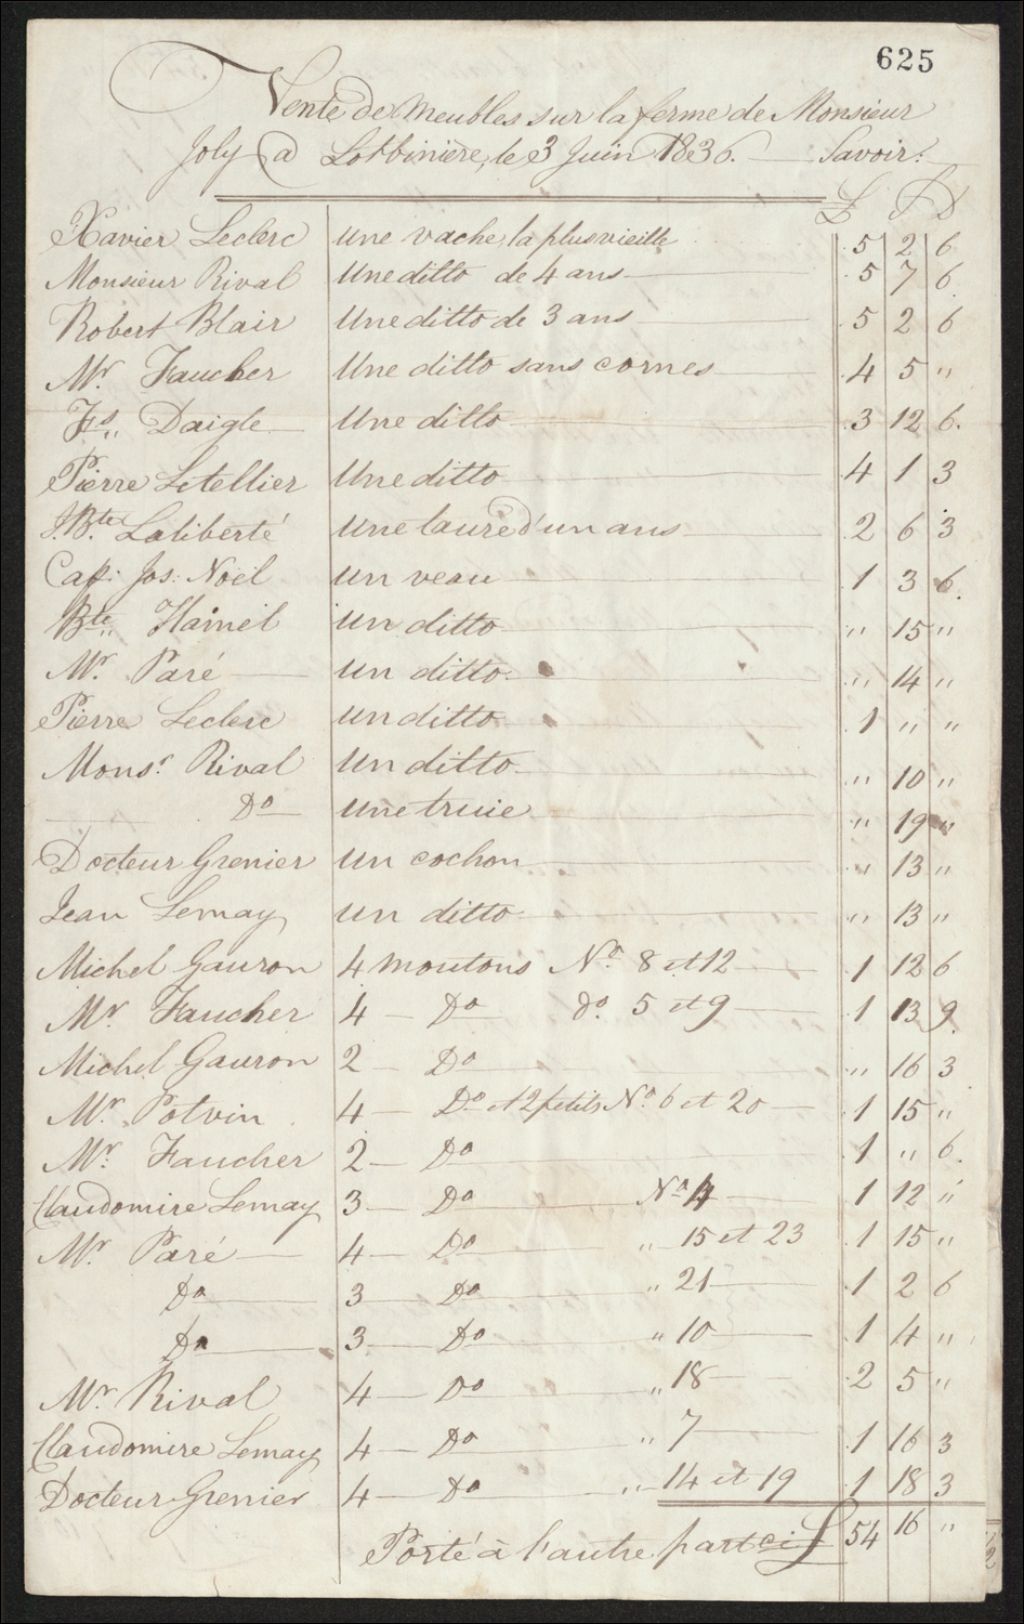 625
Vente de Meubles sur la ferme de Monsieur
Joly à Lotbinière, le 3 Juin 1836. Savoir:
£ S D
Xavier Leclerc Une vache, la plus vieille 5 2 6
Monsieur Rival Une ditto de 4 ans 5 7 6
Robert Blair Une ditto de 3 ans 5 2 6
Mr. Faucher Une ditto sans cornes 4 5 "
Fs. Daigle Une ditto 3 12 6
Pierre Letellier Une ditto 4 1 3
J. Bte. Laliberté Une taure d'un ans 2 6 3
Cap: Jos: Noël Un veau 1 3 6
Bte. Hamel Un ditto " 15 "
Mr. Paré Un ditto " 14 "
Pierre Leclerc Un ditto 1 " "
Monsr. Rival Un ditto " 10 "
Do Une truie " 19 "
Docteur Grenier Un cochon " 13 "
Jean Lemay Un ditto " 13 "
Michel Gauron 4 moutons No. 8 et 12 1 12 6
Mr Faucher 4 Do do. 5 et 9 1 13 9
Michel Gauron 2 Do " 16 3
Mr. Potvin 4 Do et 2 petits No. 6 et 20 1 15 "
Mr. Faucher 2 Do 1 " 6
Claudomire Lemay 3 Do No 4 1 12 "
Mr. Paré 4 Do " 15 et 23 1 15 "
Do 3 Do " 21 1 2 6
Do 3 Do " 10 1 4 "
Mr. Rival 4 Do " 18 2 5 "
Claudomire Lemay 4 Do " 7 1 16 3
Docteur Grenier 4 Do " 14 et 19 1 18 3
Porté à l'autre part ci £ 54 16 "